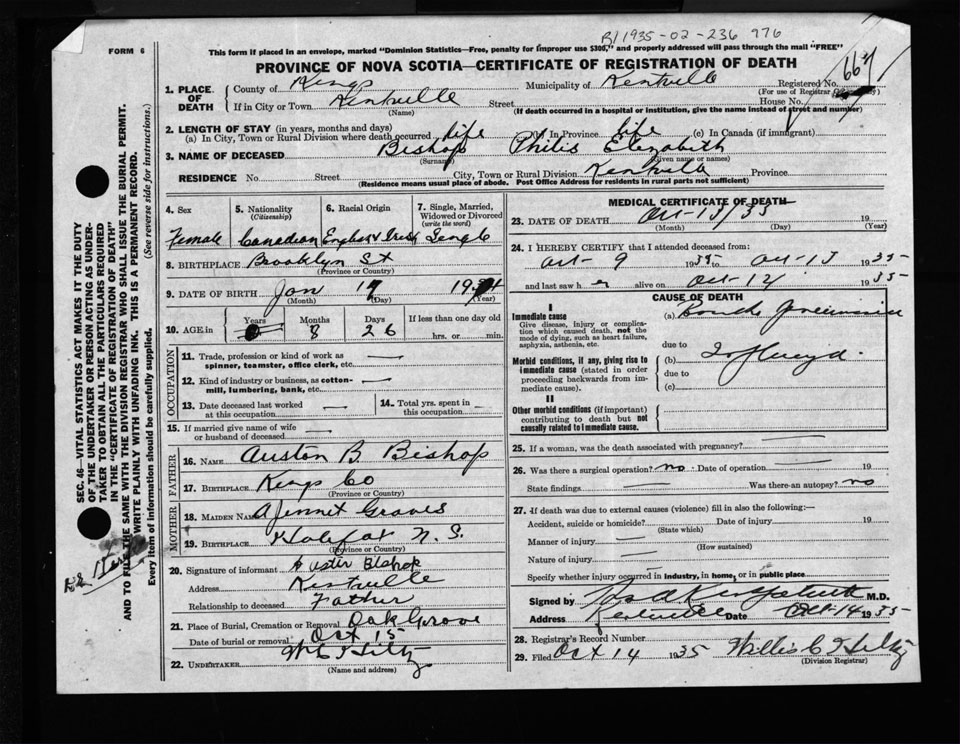 B1 1935-02-236 976
FORM 6
This form if placed in an envelope, marked "Dominion Statistics—Free, penalty for improper use $300," and properly addressed will pass through the mail "FREE"
PROVINCE OF NOVA SCOTIA—CERTIFICATE OF REGISTRATION OF DEATH
1. PLACE OF DEATH County of Kings Municipality of Kentville Registered No. 667
(For use of Registrar
If in City or Town Kentville Street House No.
(Name) (If death occurred in a hospital or institution, give the name instead of street and number)
2. LENGTH OF STAY (in years, months and days)
(a) In City, Town or Rural Division where death occurred life (b) In Province life (c) In Canada (if immigrant)
3. NAME OF DECEASED Bishop Philis Elizabeth
(Surname) (Given name or names)
RESIDENCE No. Street City, Town or Rural Division Kentville Province
(Residence means usual place of abode. Post Office Address for residents in rural parts not sufficient)
4. Sex 5. Nationality (Citizenship) 6. Racial Origin 7. Single, Married, Widowed or Divorced (write the word)
Female Canadian English & Irish Single
8. BIRTHPLACE Brooklyn St
(Province or Country)
9. DATE OF BIRTH Jan 17 19
(Month) (Day) (Year)
10. AGE in Years Months Days If less than one day old
8 26 hrs. or min.
OCCUPATION
11. Trade, profession or kind of work as spinner, teamster, office clerk, etc. —
12. Kind of industry or business, as cotton-mill, lumbering, bank, etc. —
13. Date deceased last worked at this occupation — 14. Total yrs. spent in this occupation —
15. If married give name of wife or husband of deceased —
FATHER
16. NAME Auston B Bishop
17. BIRTHPLACE Kings Co
(Province or Country)
MOTHER
18. MAIDEN NAME Jennet Graves
19. BIRTHPLACE Halifax N. S.
(Province or Country)
20. Signature of informant Bishop
Address Kentville
Relationship to deceased Father
21. Place of Burial, Cremation or Removal Oak Grove
Date of burial or removal Oct 15
22. UNDERTAKER W C Hiltz
(Name and address)
MEDICAL CERTIFICATE OF DEATH
23. DATE OF DEATH Oct-13/35 19
(Month) (Day) (Year)
24. I HEREBY CERTIFY that I attended deceased from:
Oct- 9 1935 to Oct-13 1935
and last saw h er alive on Oct-12 1935
CAUSE OF DEATH
I
Immediate cause
Give disease, injury or complication which caused death, not the mode of dying, such as heart failure, asphyxia, asthenia, etc.
(a) Broncho pneumonia
due to
Morbid conditions, if any, giving rise to immediate cause (stated in order proceeding backwards from immediate cause).
(b)
due to
(c)
II
Other morbid conditions (if important) contributing to death but not causally related to immediate cause.
25. If a woman, was the death associated with pregnancy? —
26. Was there a surgical operation? no Date of operation — 19
State findings — Was there an autopsy? no
27. If death was due to external causes (violence) fill in also the following:—
Accident, suicide or homicide? — Date of injury — 19
(State which)
Manner of injury —
(How sustained)
Nature of injury —
Specify whether injury occurred in industry, in home, or in public place
Signed by M.D.
Address Kentville Date Oct-14 1935
28. Registrar's Record Number
29. Filed Oct 14 1935 Willis C Hiltz
(Division Registrar)
SEC. 46—VITAL STATISTICS ACT MAKES IT THE DUTY
OF THE UNDERTAKER OR PERSON ACTING AS UNDER-
TAKER TO OBTAIN ALL THE PARTICULARS REQUIRED
IN THE "CERTIFICATE OF REGISTRATION OF DEATH"
AND TO FILE THE SAME WITH THE DIVISION REGISTRAR WHO SHALL ISSUE THE BURIAL PERMIT.
WRITE PLAINLY WITH UNFADING INK. THIS IS A PERMANENT RECORD.
Every item of information should be carefully supplied. (See reverse side for instructions.)